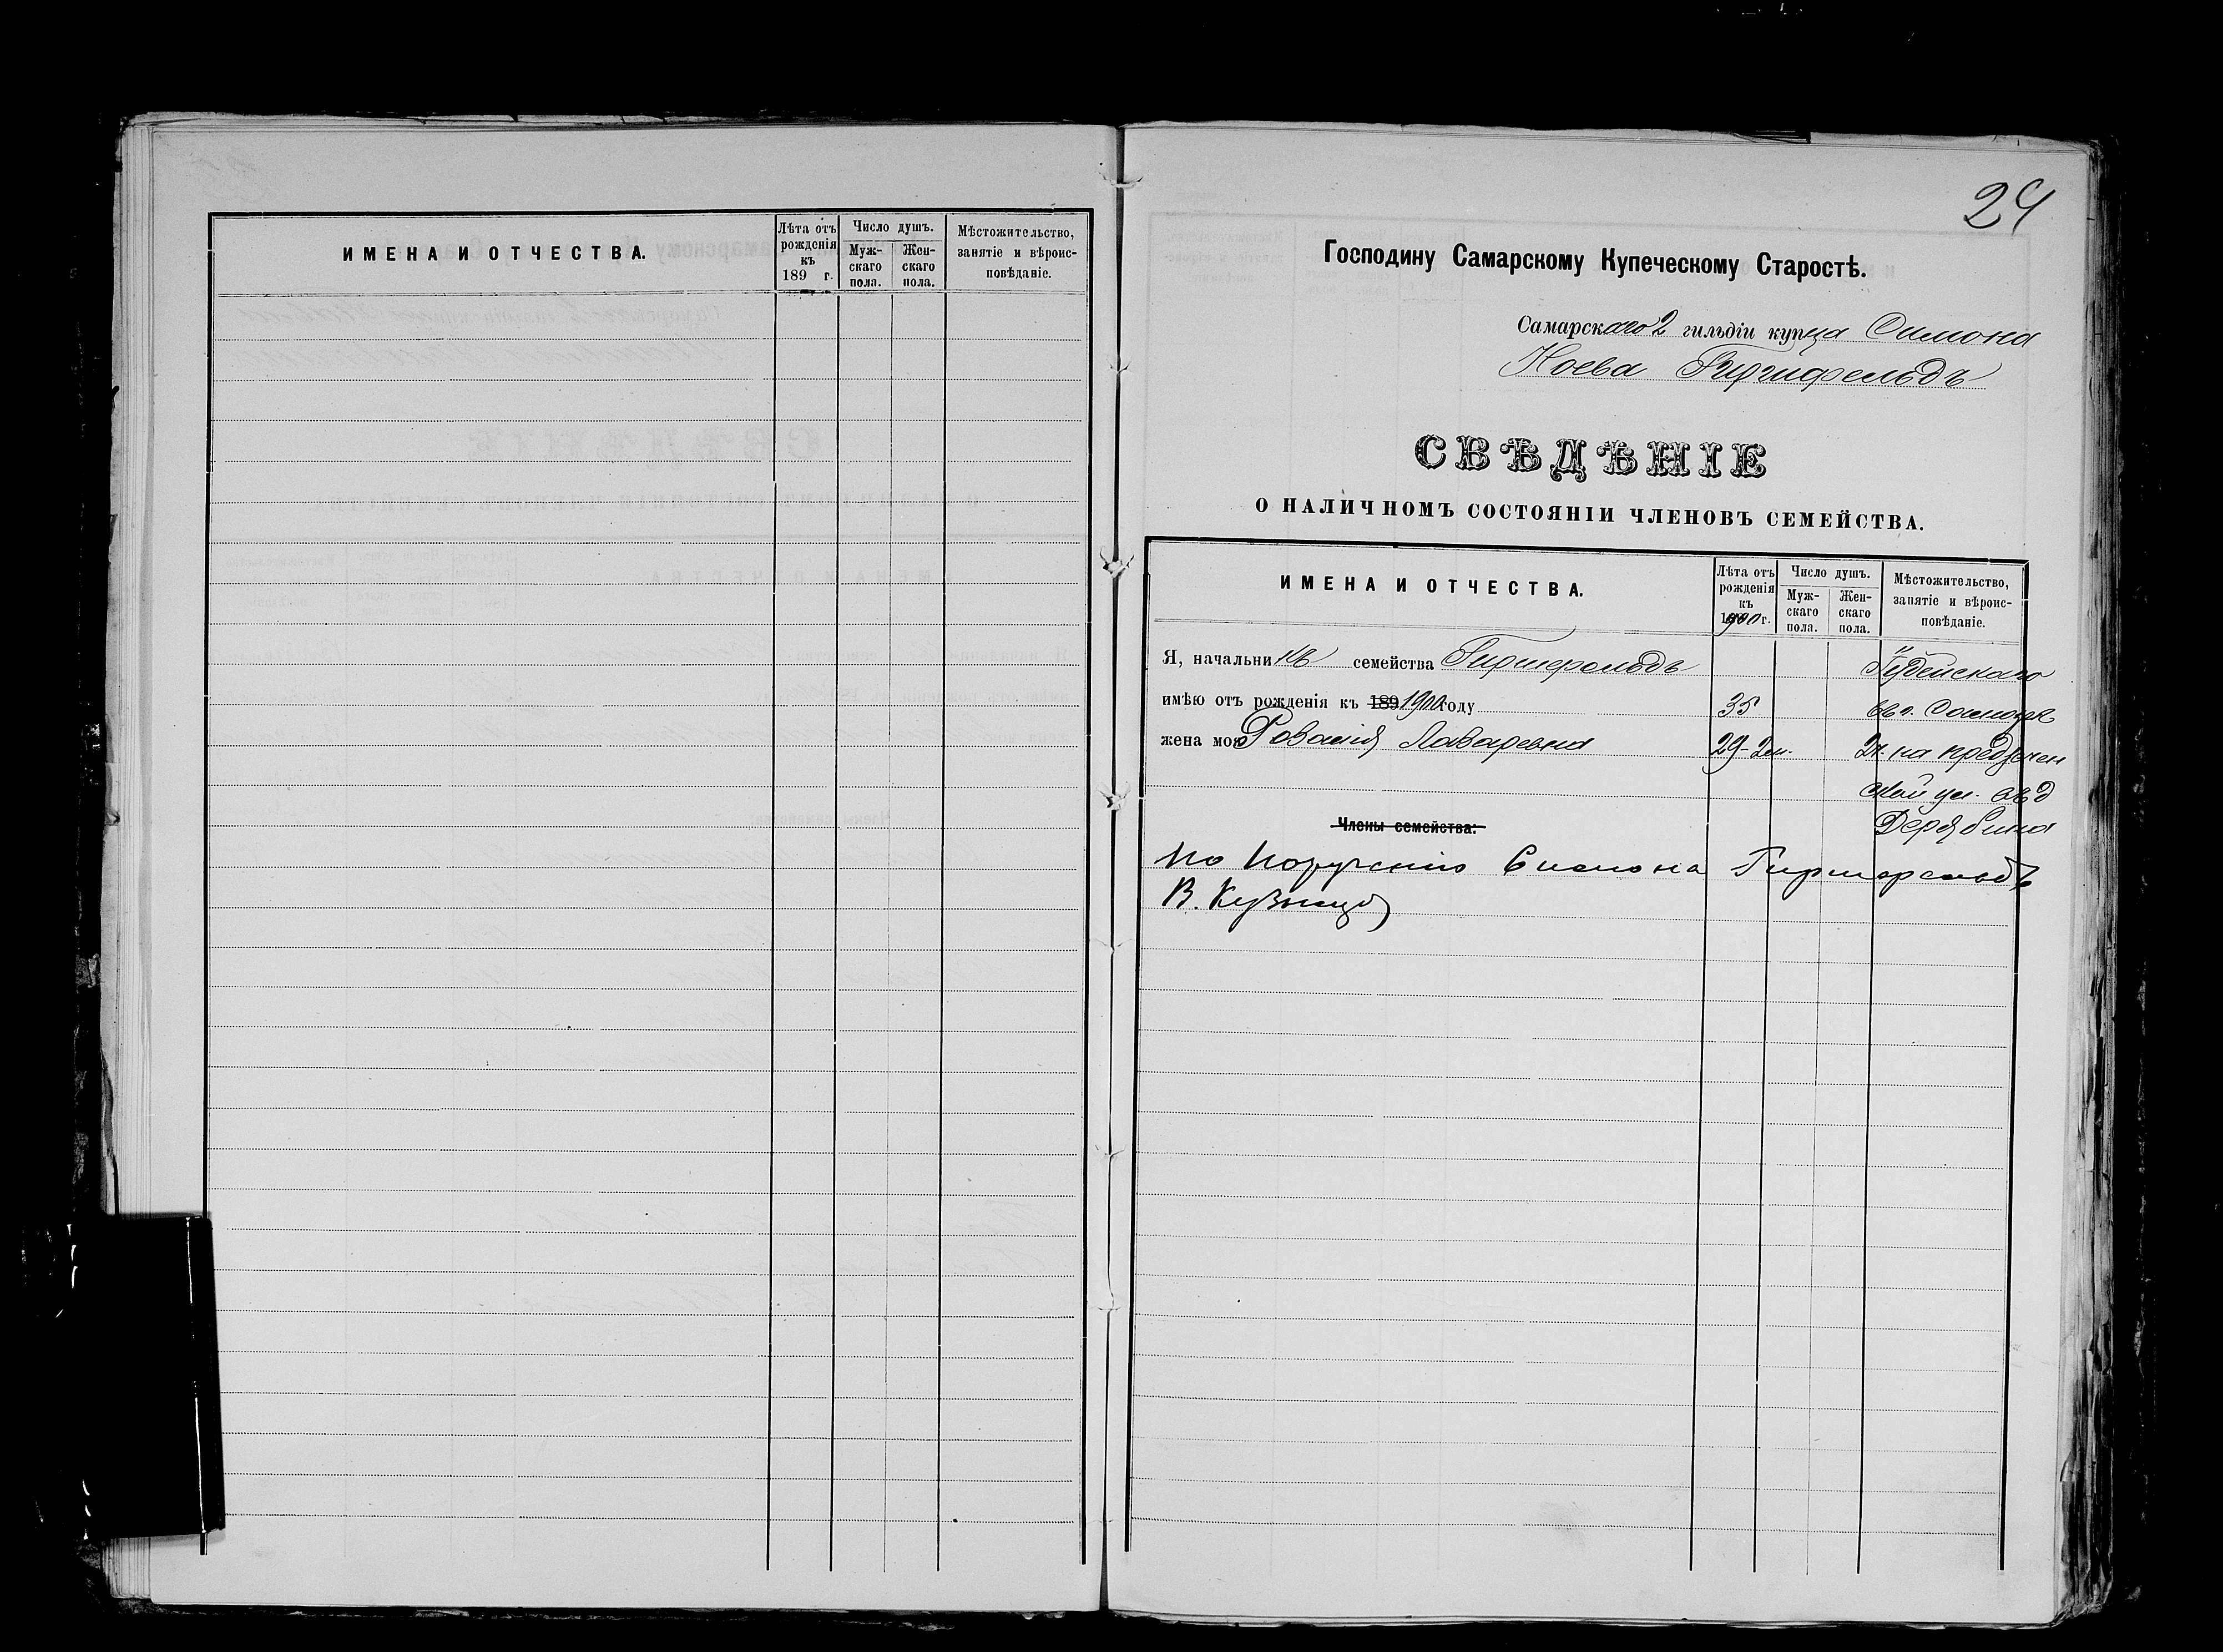 ИМЕНА И ОТЧЕСТВА.
Лѣта отъ рожденія къ 189 г.
Число душъ.
Муж-скаго пола.
Жен-скаго пола.
Мѣстожительство, занятіе и вѣроис-повѣданіе.
24
Господину Самарскому Купеческому Старостѣ.
Самарскаго 2 гильдіи купца Симона
Ноева Гиршфельдъ
СВѢДѢНІЕ
О НАЛИЧНОМЪ СОСТОЯНІИ ЧЛЕНОВЪ СЕМЕЙСТВА.
ИМЕНА И ОТЧЕСТВА.
Лѣта отъ рожденія къ 1900 г.
Число душъ.
Муж-скаго пола.
Жен-скаго пола.
Мѣстожительство, занятіе и вѣроис-повѣданіе.
Я, начальникъ семейства Гиршфельдъ Іудейскаго
имѣю отъ рожденія къ 189 1900 году 35
жена моя Розалія Лазаревна 29 на
ул.
Дерябина
Члены семейства:
По порученію Симона Гиршфельдъ
В. Кузнецов